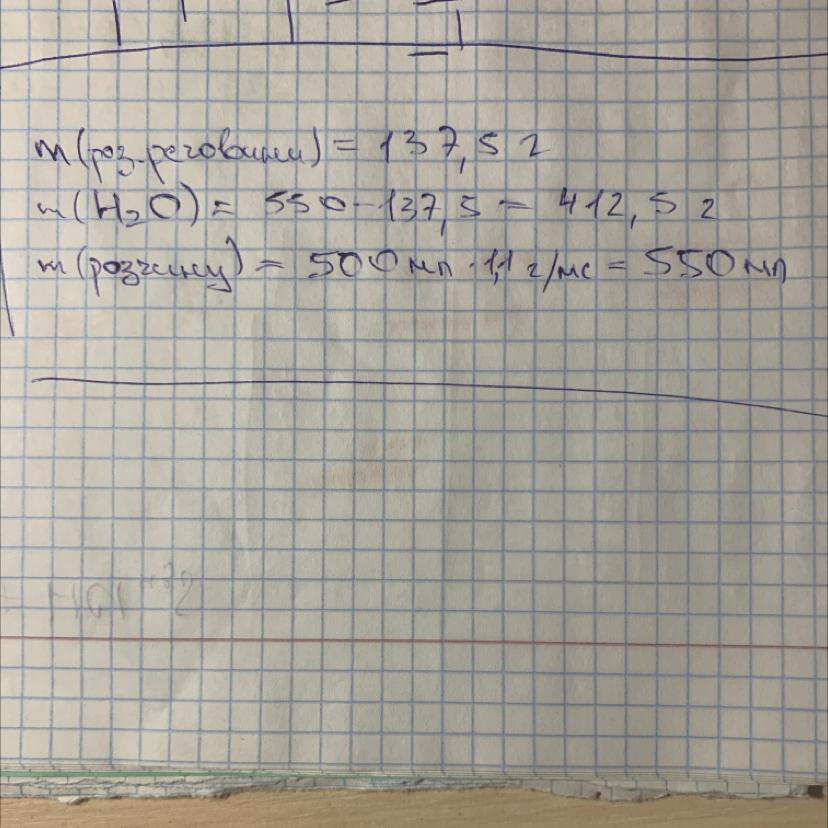 m(роз.речовини) = 137,5 г
m(H₂O) = 550 - 137,5 = 412,5 г
m(розчину) = 500 мл · 1,1 г/мс = 550 мл